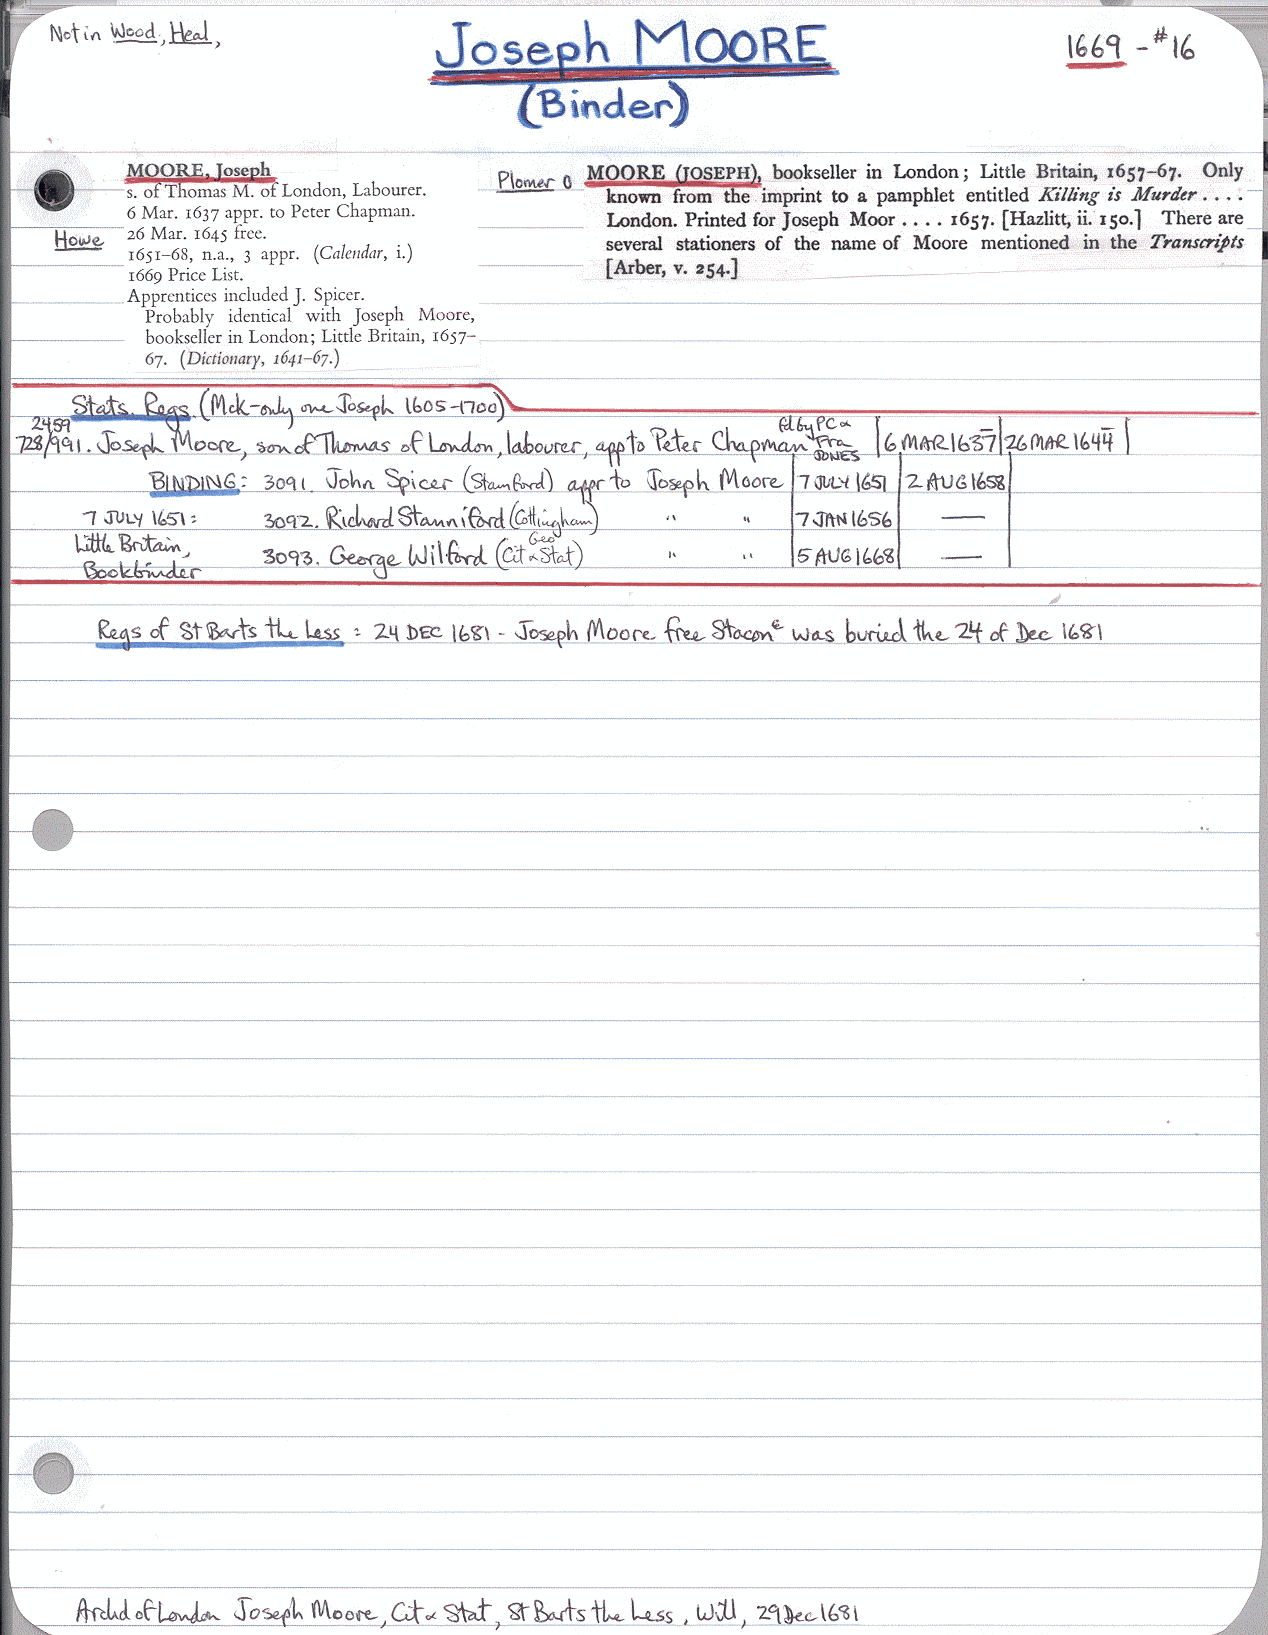 Not in Wood, Heal,
Joseph MOORE
(Binder)
1669 - #16
Howe
MOORE, Joseph
s. of Thomas M. of London, Labourer.
6 Mar. 1637 appr. to Peter Chapman.
26 Mar. 1645 free.
1651–68, n.a., 3 appr. (Calendar, i.)
1669 Price List.
Apprentices included J. Spicer.
Probably identical with Joseph Moore,
bookseller in London; Little Britain, 1657–
67. (Dictionary, 1641–67.)
Plomer 0
MOORE (JOSEPH), bookseller in London; Little Britain, 1657–67. Only
known from the imprint to a pamphlet entitled Killing is Murder . . . .
London. Printed for Joseph Moor . . . . 1657. [Hazlitt, ii. 150.] There are
several stationers of the name of Moore mentioned in the Transcripts
[Arber, v. 254.]
Stats. Regs. (McK-only one Joseph 1605-1700)
2459
728/991. Joseph Moore, son of Thomas of London, labourer, app to Peter Chapman fd by PC & Fra JONES 6 MAR 1637 26 MAR 1644
BINDING: 3091. John Spicer (Stamford) appr to Joseph Moore 7 JULY 1651 2 AUG 1658
7 JULY 1651: 3092. Richard Stanniford (Cottingham) " " 7 JAN 1656 —
Little Britain, 3093. George Wilford (Geo Cit & Stat) " " 5 AUG 1668 —
Bookbinder
Regs of St Barts the Less : 24 DEC 1681 - Joseph Moore free Stacon^e was buried the 24 of Dec 1681
Archd of London Joseph Moore, Cit & Stat, St Barts the Less, Will, 29 Dec 1681